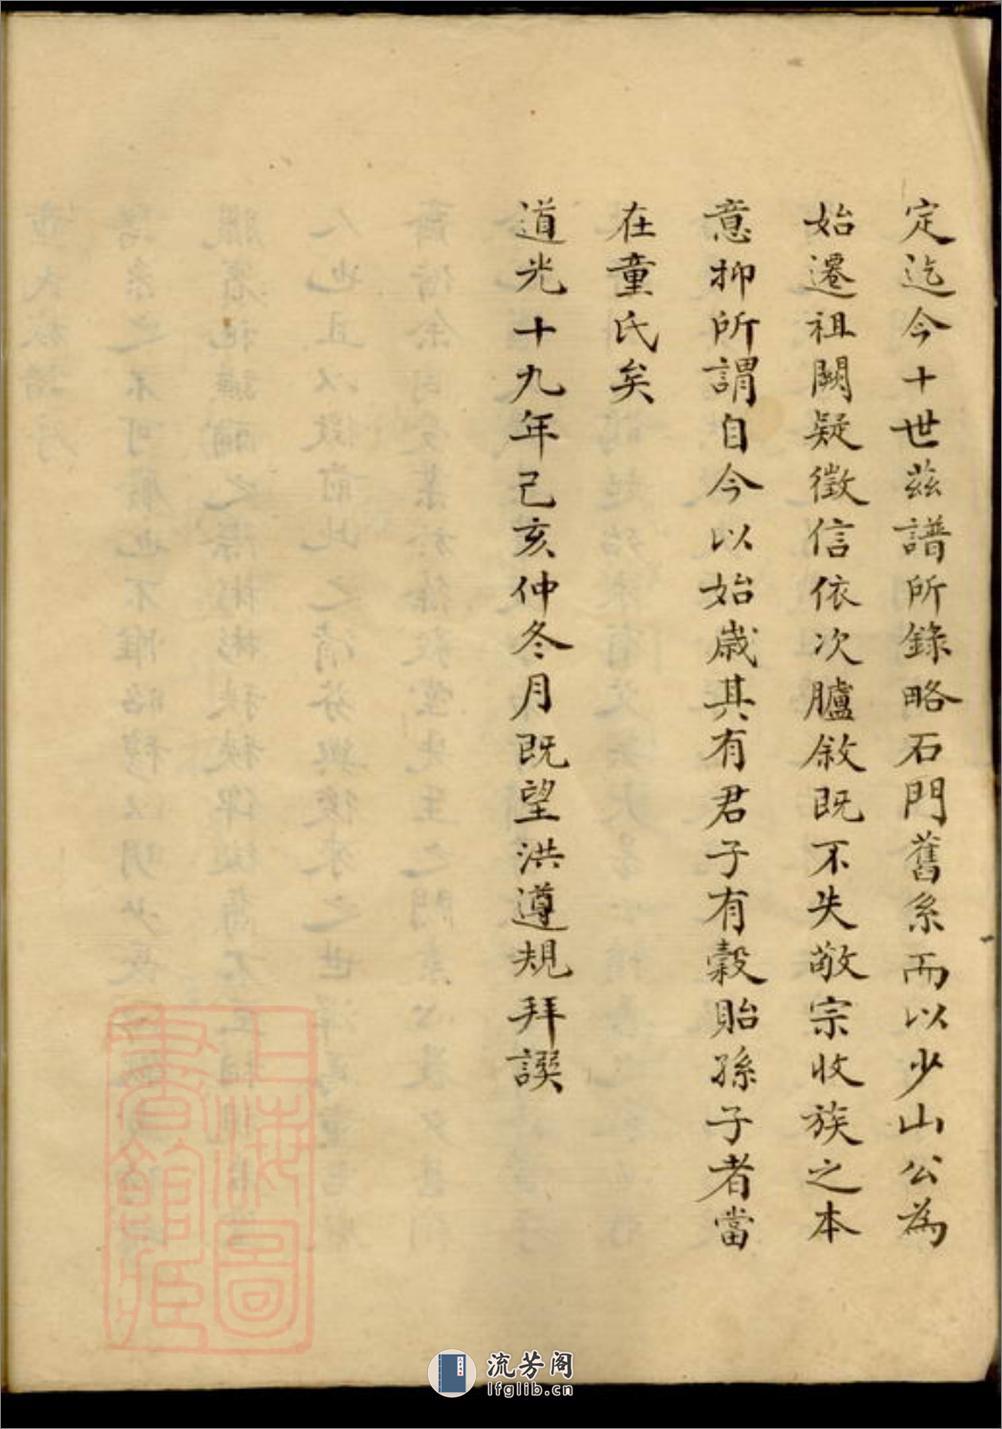 定迄今十世茲譜所錄略石門舊系而以少山公為
始遷祖闕疑徵信依次臚敘既不失敬宗收族之本
意抑所謂自今以始歲其有君子有穀貽孫子者當
在童氏矣
道光十九年己亥仲冬月既望洪遵規拜譔
上海圖
書館藏
流芳阁
lfglib.cn